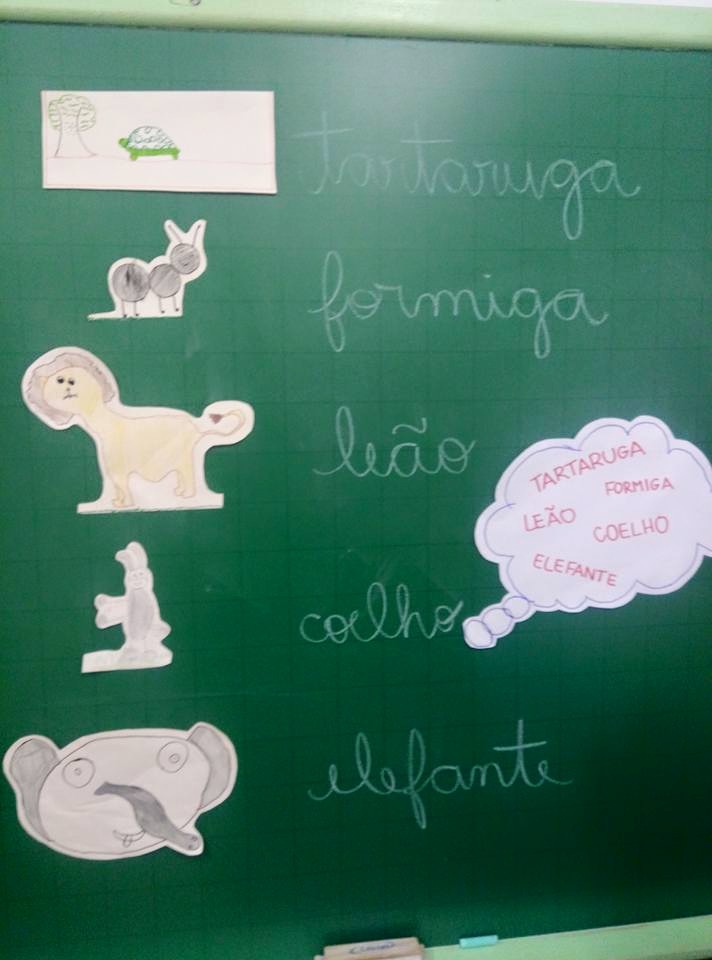 tartaruga
formiga
leão
coelho
elefante
TARTARUGA
FORMIGA
LEÃO
COELHO
ELEFANTE